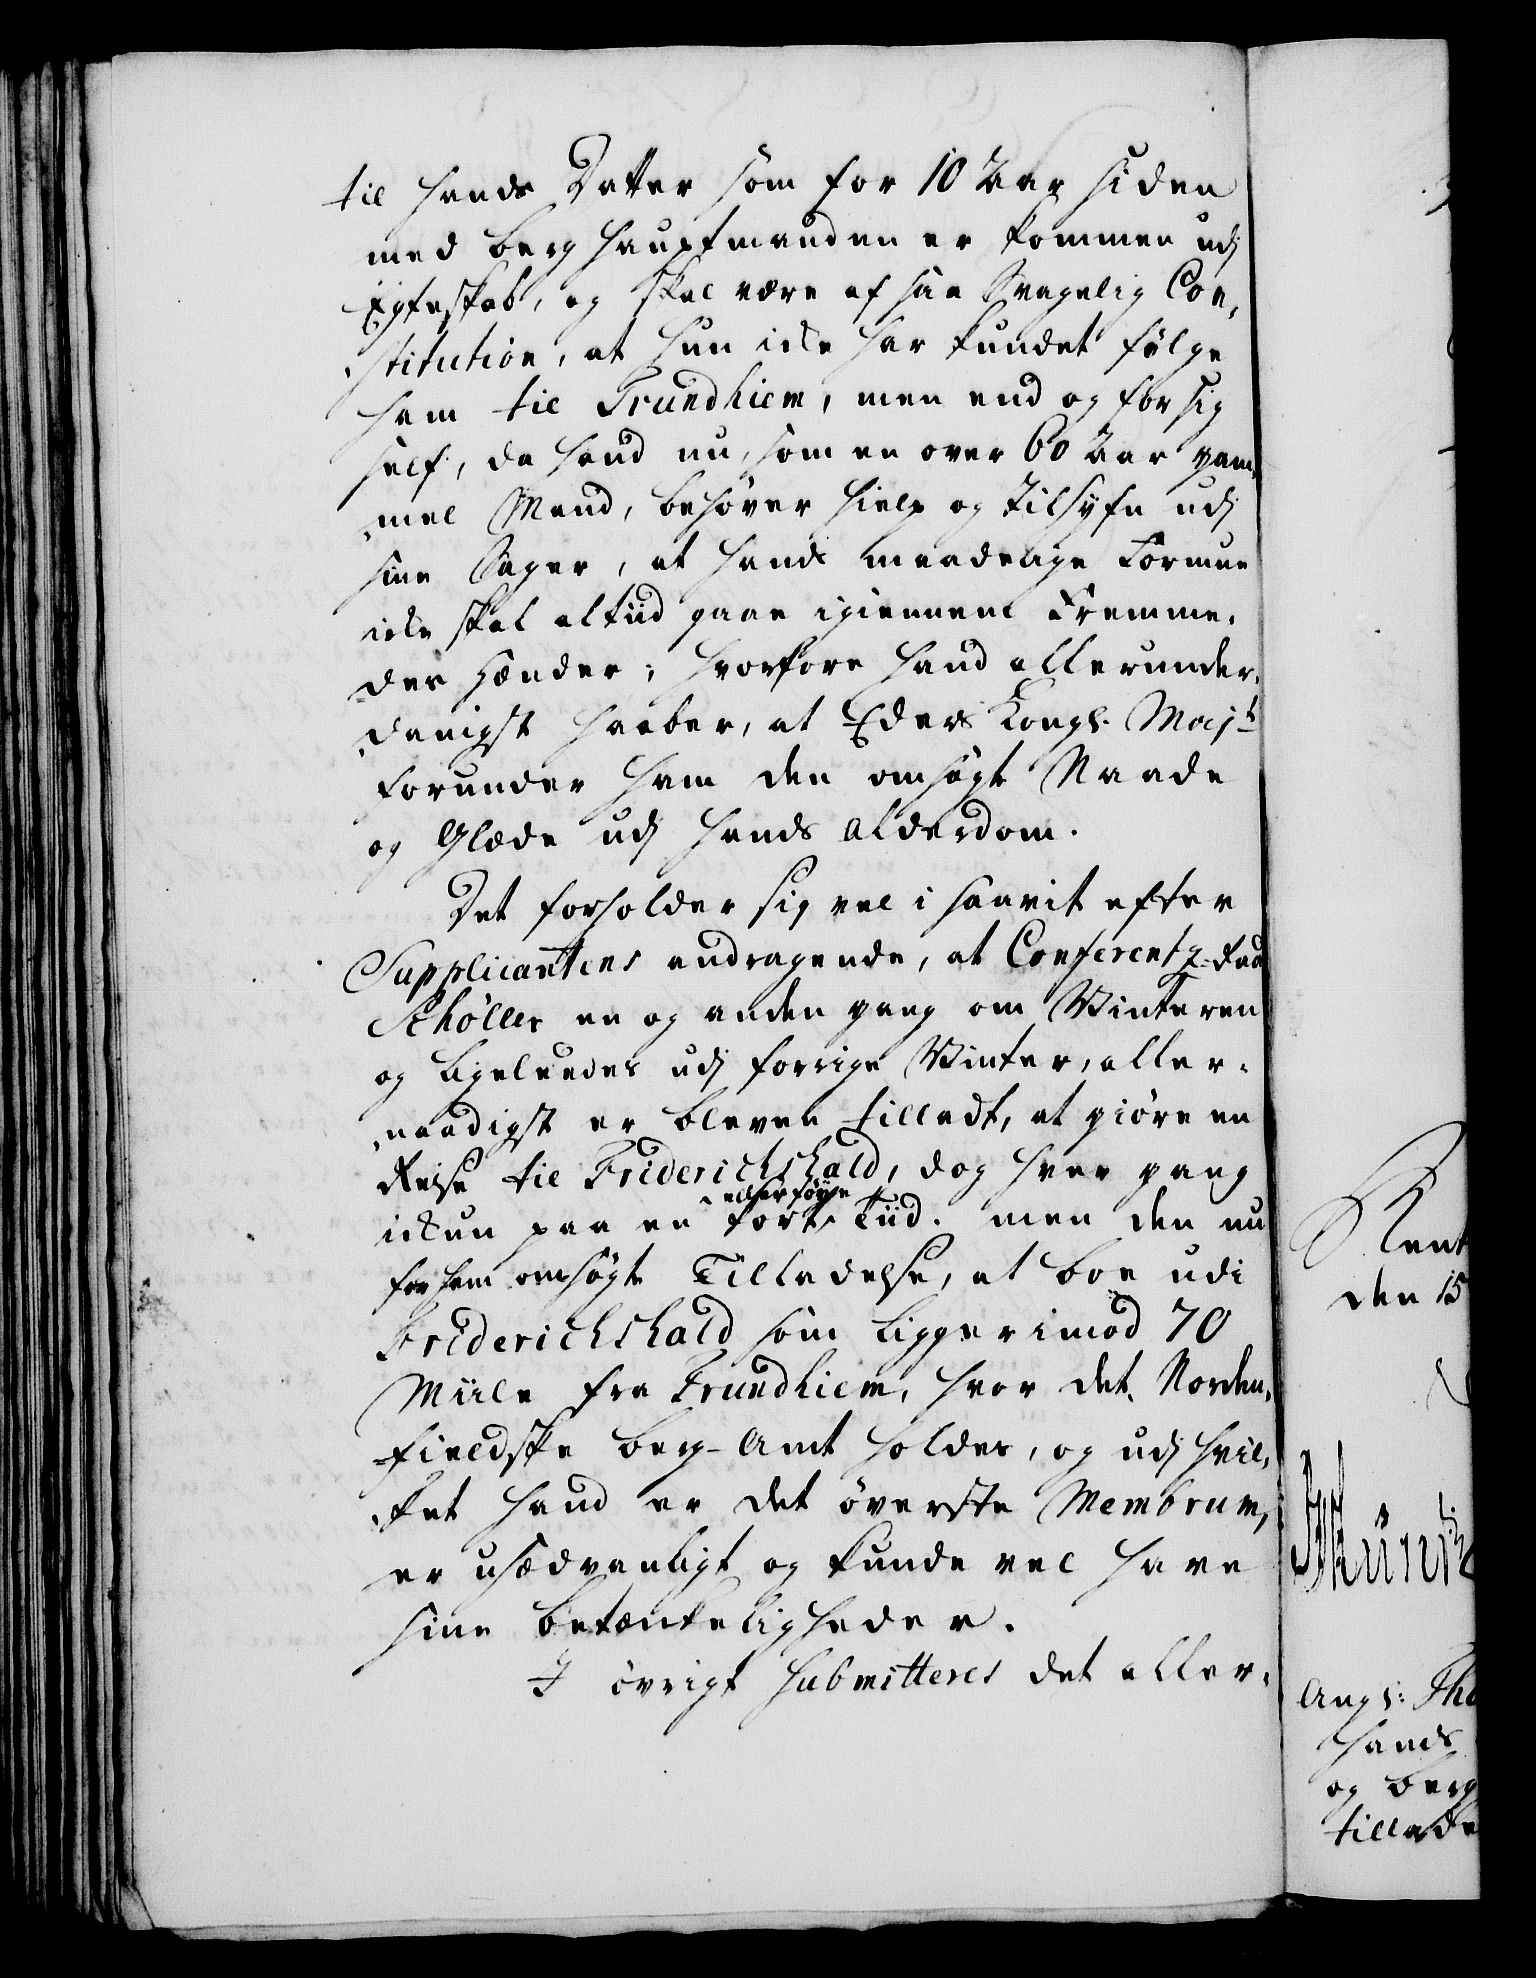 til hands Datter som for 10 Aar siden
med Berghauptmanden er kommen udj
Egteskab, og skal være af saa Svagelig Con¬
stitution, at hun icke har kundet følge
ham til Trundhiem, men end og for sig
self, da hand nu, som en over 60 Aar gam¬
mel Mand, behøver hielp og Tilsyn udj
sine Sager, at hands maadelige Formue
icke skal altiid gaae igiennem Fremme¬
des hænder; hvorfore hand allerunder¬
danigst haaber, at Eders Kongl. Majt
forunder ham den omsøgte Naade
og Glæde udj hands Alderdom.
Det forholder sig vel i saavit efter
Supplicantens andragende, at Conferentz-Raad
Schøller en og anden gang om Winteren
og ligeleedes udj forrige Winter, aller¬
naadigst er bleven tilladt, at giøre en
Reise til Friderichshald, dog hver gang
ickun paa en føye Tiid. men den nu
for ham omsøgte Tilladelse, at boe udi
Friderichshald som ligger imod 70
Miile fra Trundhiem, hvor det Norden¬
fieldske Berg-Amt holdes, og udj hvil¬
ket hand er det øverste Membrum,
er usædvanligt og kunde vel have
sine betænkeligheder.
I øvrigt submitteres det aller¬
Rent
den 15
Angl: Th
hands
og berg
tillade